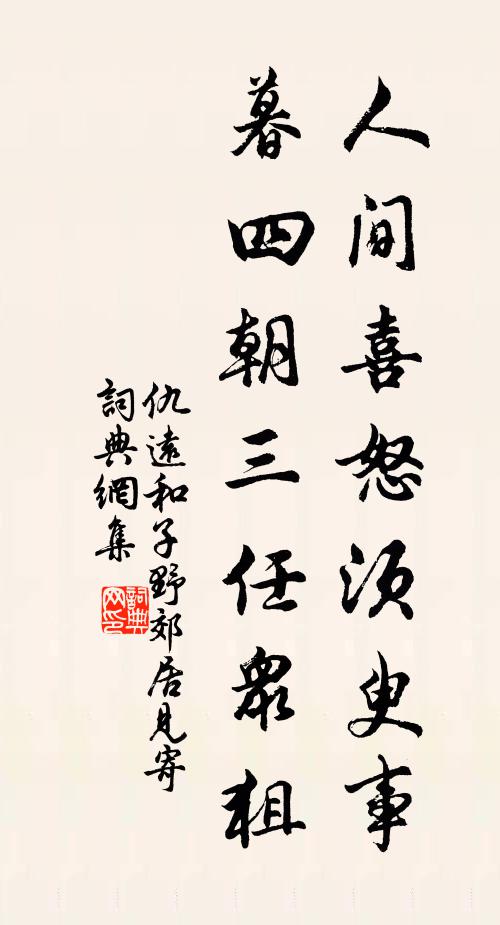 人間喜怒須臾事
暮四朝三任眾狙
仇遠和子野郊居見寄
詞典網集
詞典网印